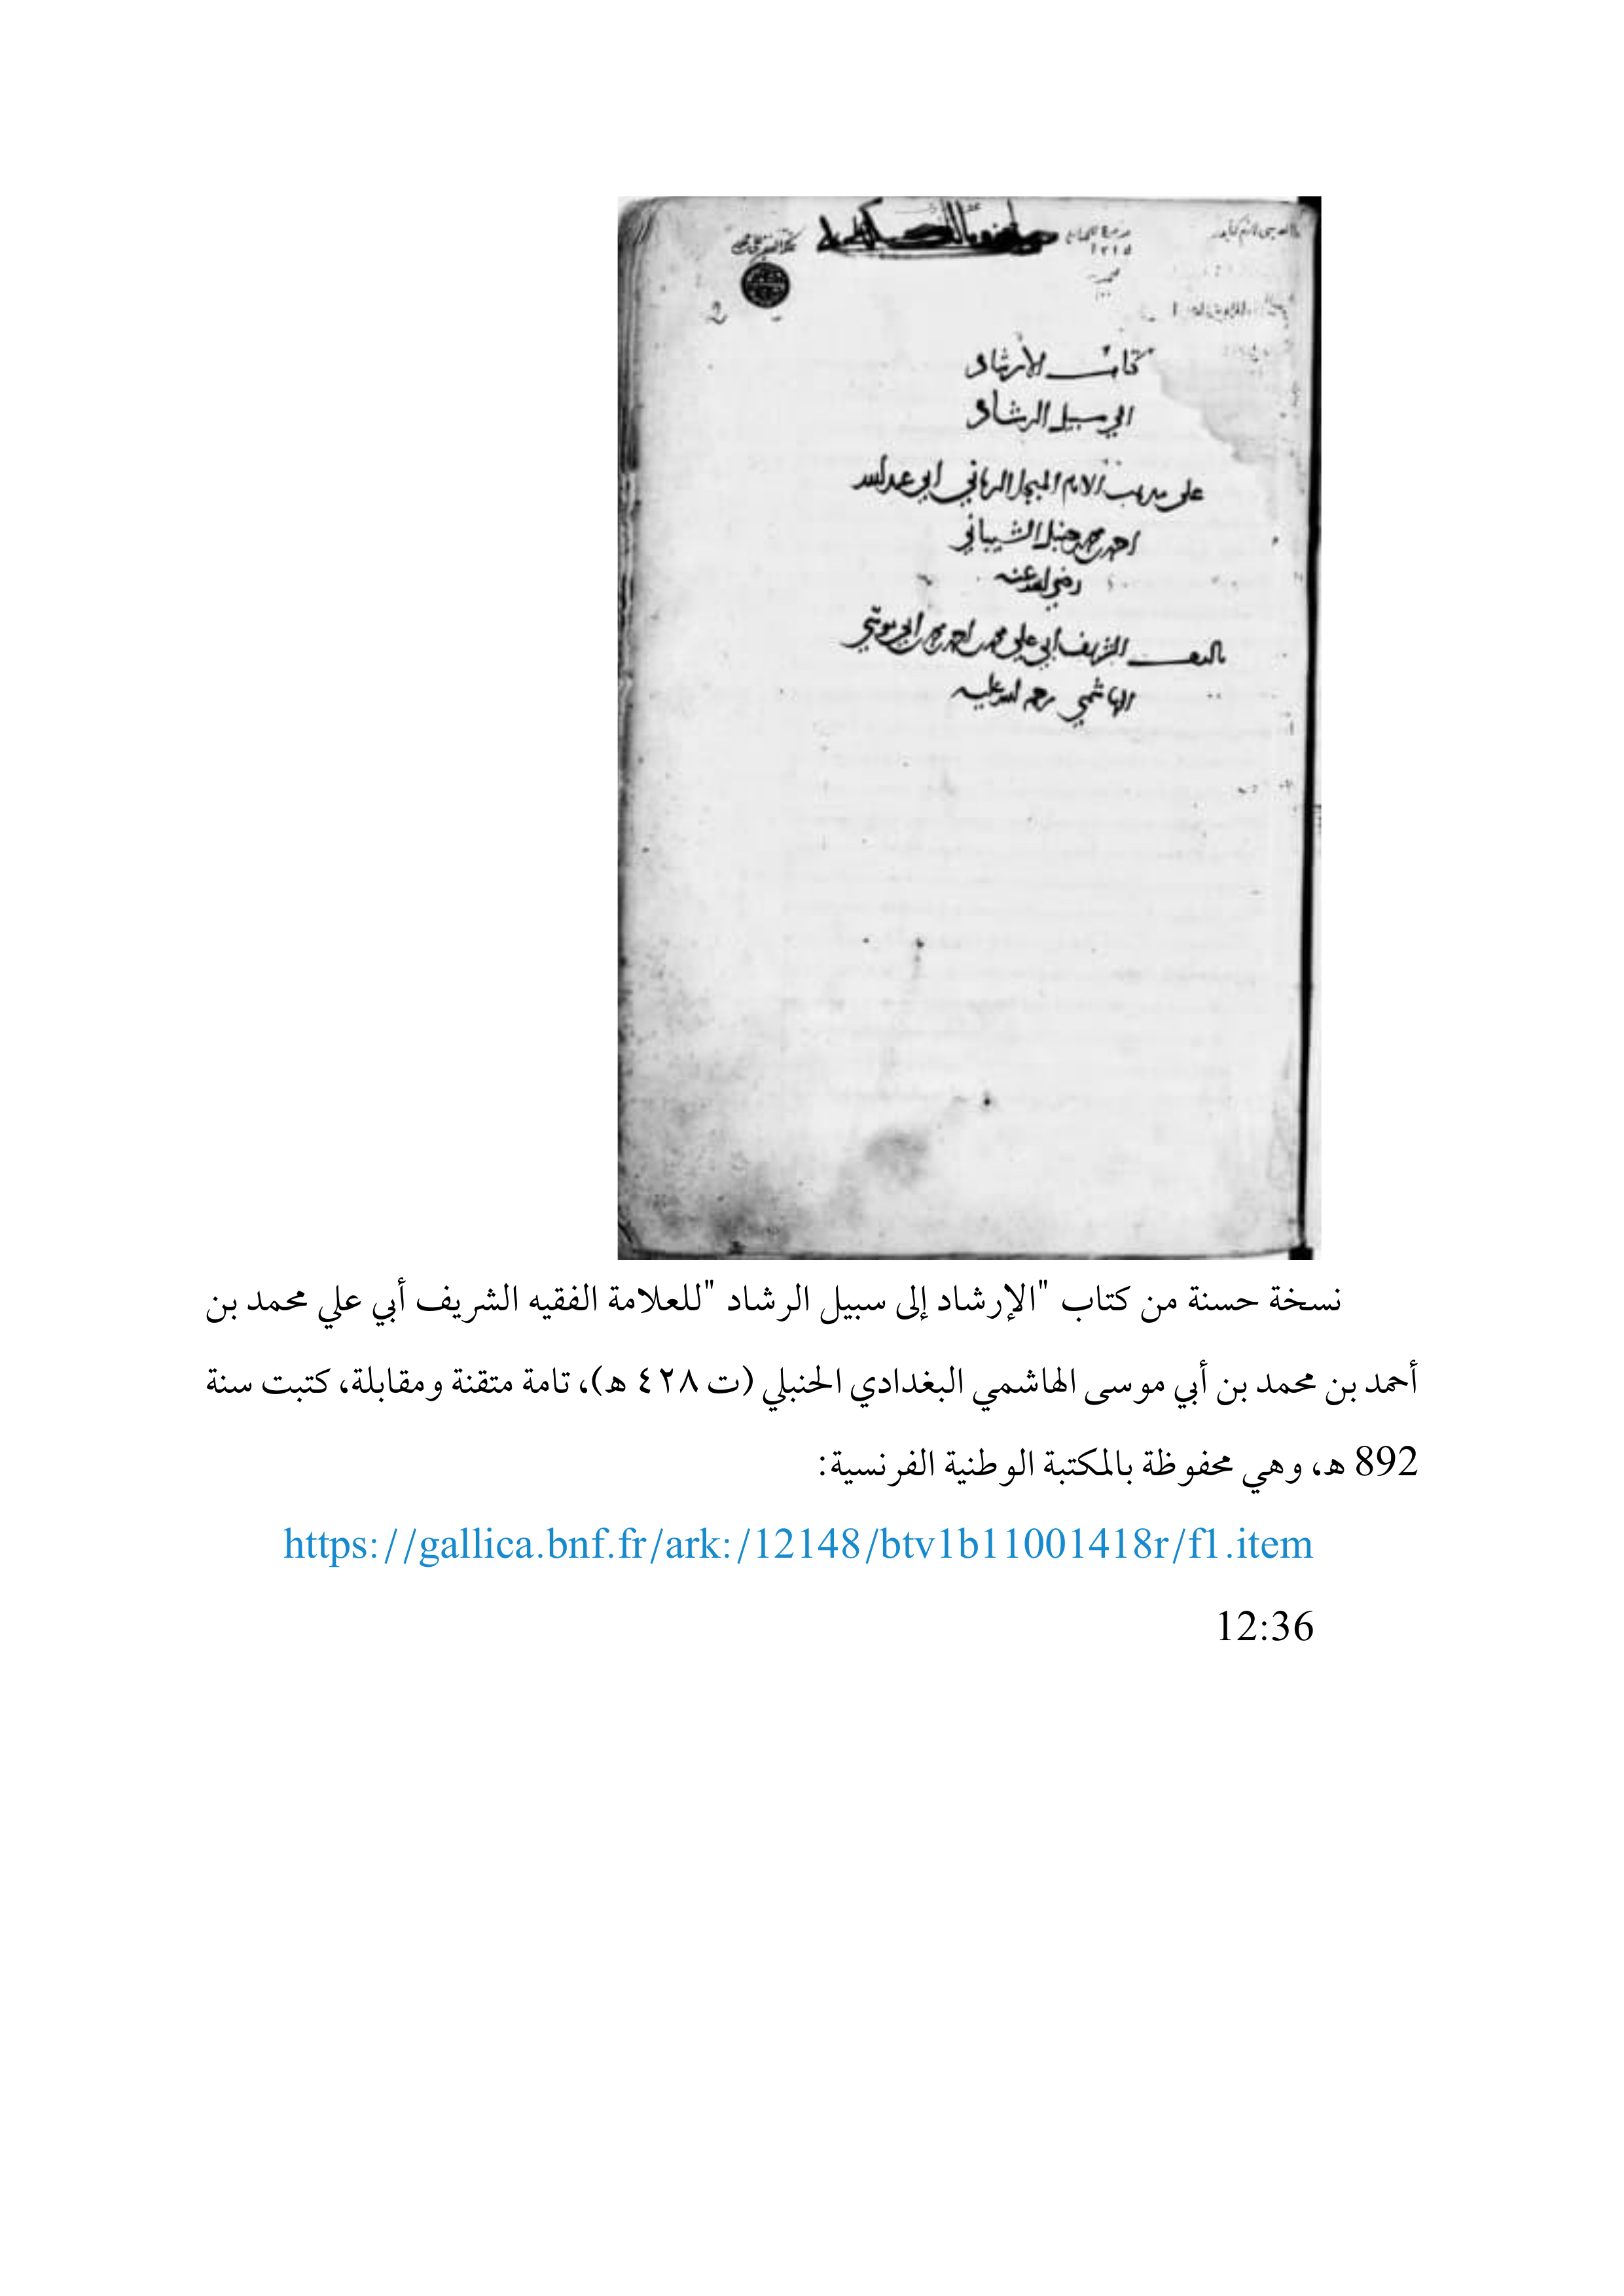 2
كتاب الارشاد
الى سبيل الرشاد
على مذهب الامام المبجل الرباني ابي عبد الله
احمد بن محمد بن حنبل الشيباني
رضي الله عنه
تاليف الشريف ابي علي محمد بن احمد بن محمد بن ابي موسى
الهاشمي رحمة الله عليه
نسخة حسنة من كتاب "الإرشاد إلى سبيل الرشاد "للعلامة الفقيه الشريف أبي علي محمد بن
أحمد بن محمد بن أبي موسى الهاشمي البغدادي الحنبلي (ت ٤٢٨ هـ)، تامة متقنة ومقابلة، كتبت سنة
892 هـ، وهي محفوظة بالمكتبة الوطنية الفرنسية:
https://gallica.bnf.fr/ark:/12148/btv1b11001418r/f1.item
12:36